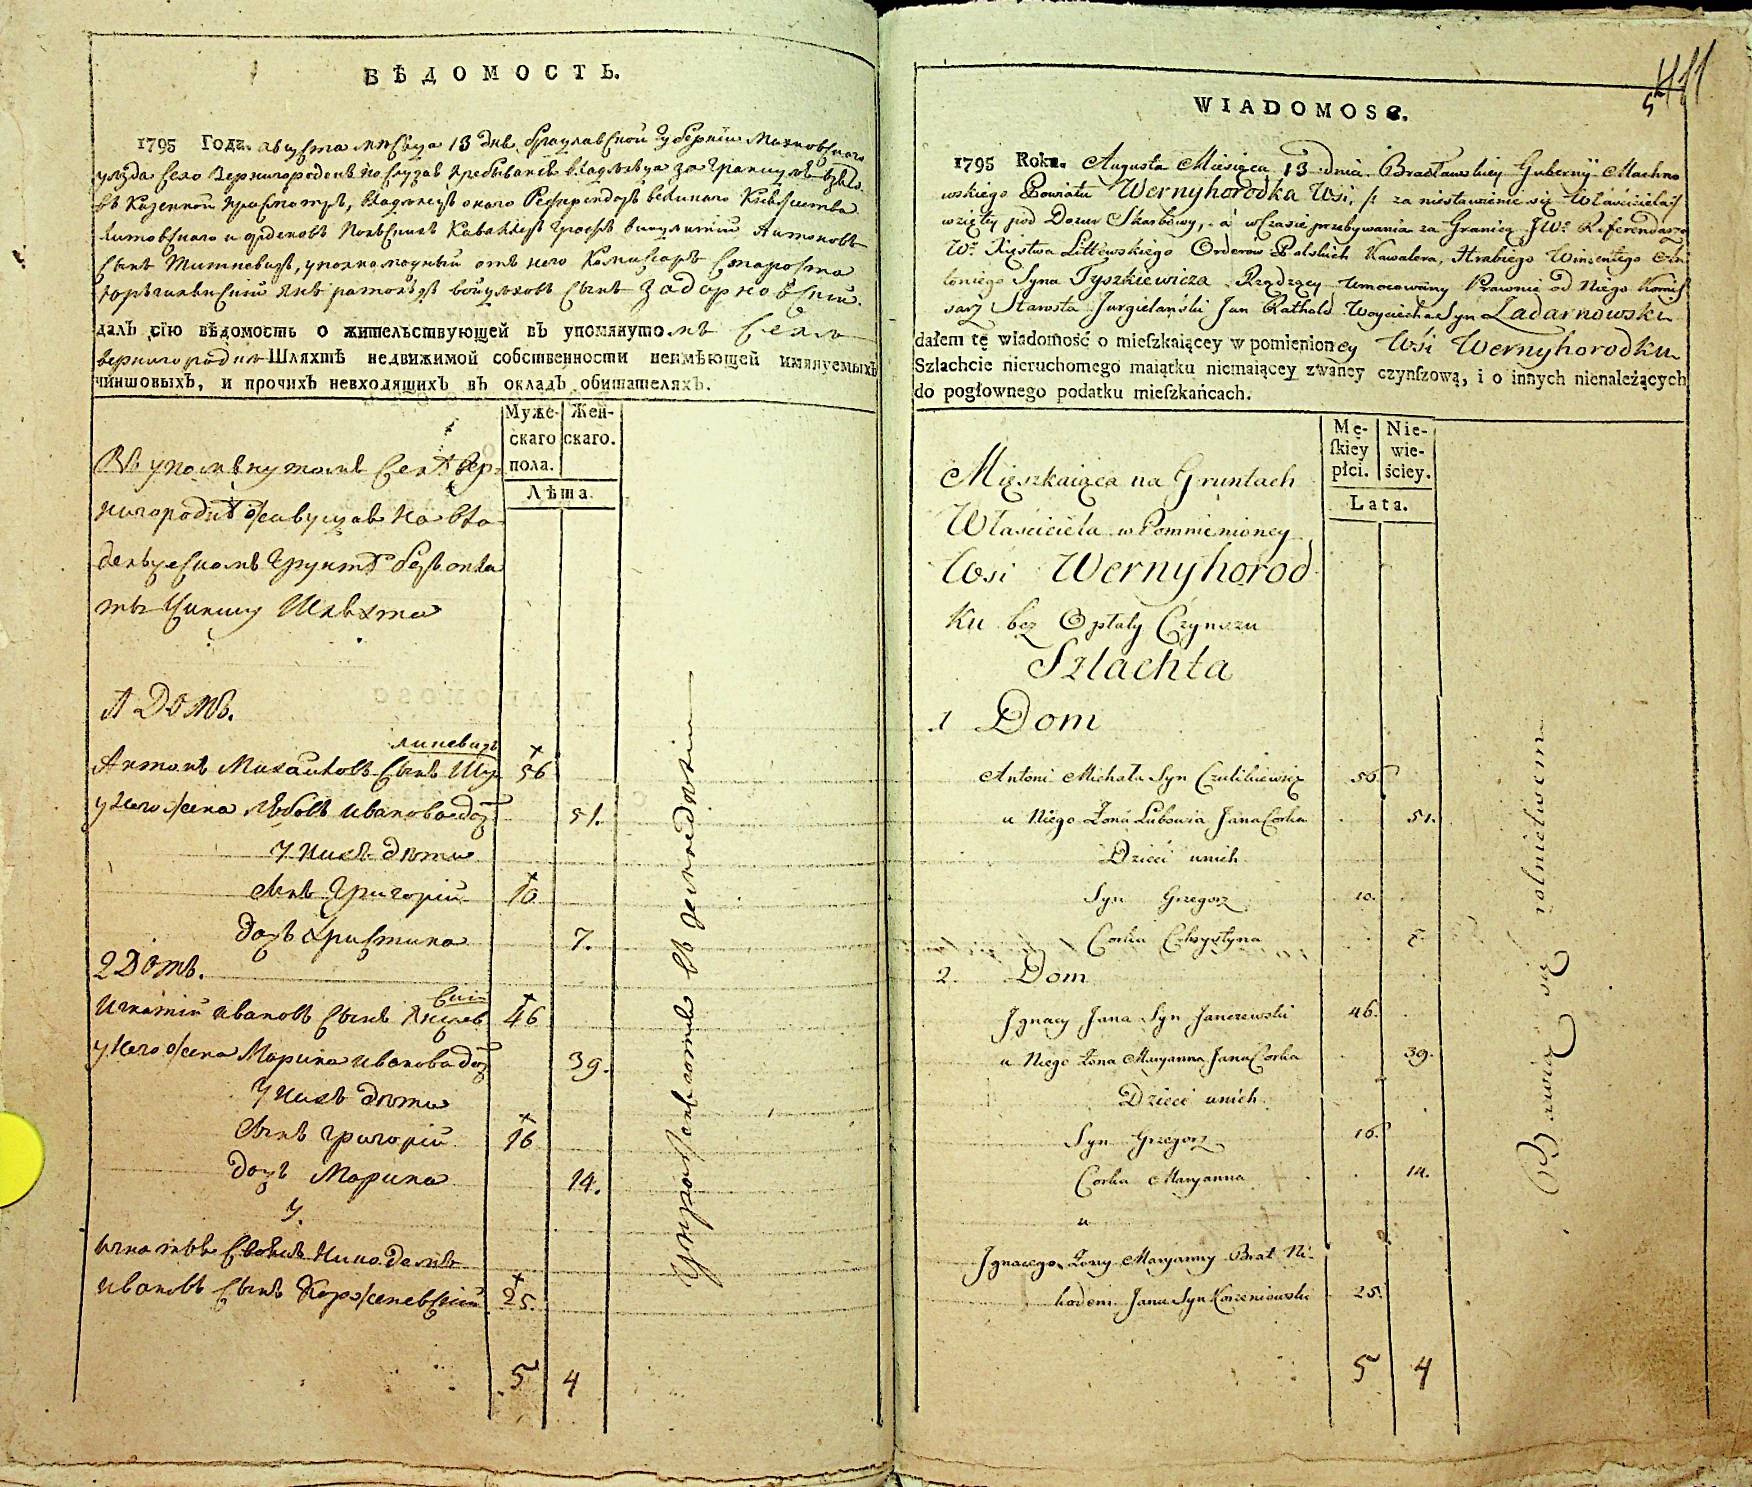 ВѢДОМОСТЬ.
1795 Годъ. августа мѣсяца 13 дня Браславской губерніи Махновскаго
уѣзда села
въ казенной присмотръ,
Литовскаго и орденовъ Польскихъ Кавалеръ Графъ Викентій Антоновъ
сынъ Тишкевичъ, уполномочный отъ него Комисаръ Староста
сынъ
далъ сію вѣдомость о жительствующей въ упомянутомъ Селѣ
Шляхтѣ недвижимой собственности неимѣющей имянуемыхъ
чиншовыхъ, и прочихъ невходящихъ въ окладъ обитателяхъ.
Муже- Жен-
скаго скаго.
пола.
Лѣта.
Въ упомянутомъ Селѣ Вер-
нигородкѣ живущая на Вла-
дельческомъ Грунтѣ безъ опла
ты Чиншу Шляхта
1 Домъ.
Антонъ Михайловъ Сынъ Шу 56
линевичъ
у него жена Любовь Иванова доч 51.
У нихъ дѣти
сынъ Григорій 10
дочь Христина 7.
2 Домъ.
Игнатій Ивановъ Сынъ Янчев 46
скій
у него жена Марина Иванова доч 39.
У нихъ дѣти
сынъ Григорій 16
дочь Марина 14.
У
Ивановъ Сынъ Корженевскій 25.
5 4
упражняются въ земледеліи
411
5
WIADOMOSC.
1795 Roku. Augusta Miesiąca 13 dnia Bracławskiey Gubernij Machno
wskiego Powiatu Wernyhorodka Wsi, za niestawienie się Właściciela
wzięty pod Dozur Skarbowy, a wczasie przebywania za Granicą JWo Referendarza
Wo Xięstwa Littewskiego Orderow Polskich Kawalera, Hrabiego Wincentego An
toniego Syna Tyszkiewicza Rządzący Umocowany Prawnie od Niego Komis
sarz Starosta Jurgielański Jan Rathold Woyciecha Syn Zadarnowski
dałem tę wiadomość o mieſzkaiącey w pomienioney Wsi Wernyhorodku
Szlachcie nieruchomego maiątku niemaiącey zwaney czynſzową, i o innych nienależących
do pogłownego podatku mieſzkańcach.
Mę- Nie-
ſkiey wie-
płci. ściey.
Lata.
Mięszkaiąca na Gruntach
Właściciela w Pomnienioney
Wsi Wernyhorod
ku bez Opłaty Czynszu
Szlachta
1 Dom
Antoni Michała Syn Czulikiewicz 56
u Niego Żona Lubowia Jana Corka 51.
Dzieci unich
Syn Grzegorz 10.
Corka Chrystyna 7.
2. Dom
Jgnacy Jana Syn Janczewski 46.
u Niego Żona Maryanna Jana Corka 39.
Dzieci unich
Syn Grzegorz 16.
Corka Maryanna 14.
u
Jgnacego Żony Maryanny Brat Ni-
kodem Jana Syn Korzeniowski 25.
5 4
Bawią się rolnictwem